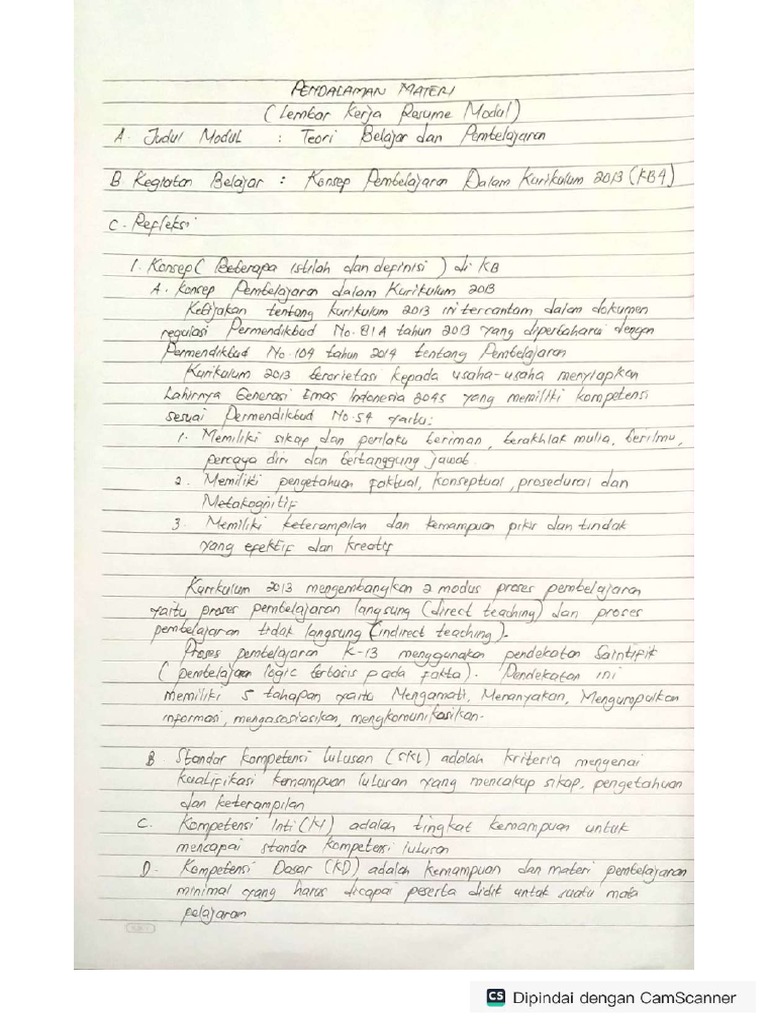 PENDALAMAN MATERI
(Lembar Kerja Resume Modul)
A. Judul Modul : Teori Belajar dan Pembelajaran
B Kegiatan Belajar : Konsep Pembelajaran Dalam Kurikulum 2013 (KB4)
C. Refleksi
1. Konsep (Beberapa istilah dan definisi) di KB
A. Konsep Pembelajaran dalam Kurikulum 2013
Kebijakan tentang kurikulum 2013 ini tercantam dalam dokumen
regulasi Permendikbud No. 81A tahun 2013 yang diperbaharui dengan
Permendikbud No. 104 tahun 2014 tentang Pembelajaran
Kurikulum 2013 berorietasi kepada usaha-usaha menyiapkan
Lahirnya Generasi Emas Indonesia 2045 yang memiliki kompetensi
sesuai Permendikbud No. 54 yaitu:
1. Memiliki sikap dan perilaku beriman, berakhlak mulia, berilmu,
percaya diri dan bertanggung jawab.
2. Memiliki pengetahuan faktual, konseptual, prosedural dan
Metakognitif
3. Memiliki keterampilan dan kemampuan pikir dan tindak
yang efektif dan kreatif
Kurikulum 2013 mengembangkan 2 modus proses pembelajaran
yaitu proses pembelajaran langsung (direct teaching) dan proses
pembelajaran tidak langsung (indirect teaching).
Proses pembelajaran K-13 menggunakan pendekatan Saintipik
(pembelajaran logic berbasis pada fakta). Pendekatan ini
memiliki 5 tahapan yaitu Mengamati, Menanyakan, Mengumpulkan
informasi, mengasosiasikan, mengkomunikasikan.
B. Standar kompetensi lulusan (SKL) adalah kriteria mengenai
kualifikasi kemampuan lulusan yang mencakup sikap, pengetahuan
dan keterampilan
C. Kompetensi Inti (KI) adalah tingkat kemampuan untuk
mencapai standar kompetensi lulusan
D. Kompetensi Dasar (KD) adalah kemampuan dan materi pembelajaran
minimal yang harus dicapai peserta didik untuk suatu mata
pelajaran
CS Dipindai dengan CamScanner